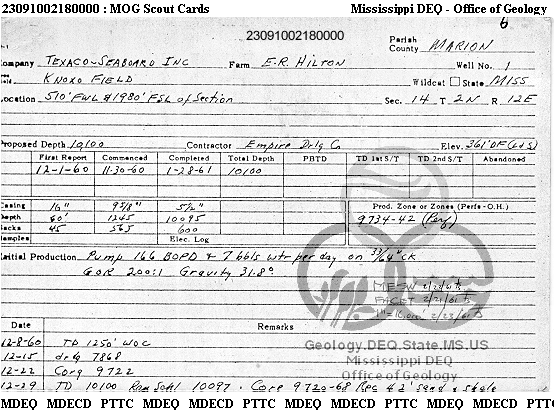 23091002180000 : MOG Scout Cards Mississippi DEQ - Office of Geology
6
23091002180000
Parish
County MARION
ompany TEXACO-SEABOARD INC Farm E.R. HILTON Well No. 1
ield KNOXO FIELD Wildcat State MISS
ocation 510' FWL & 1980' FSL of Section Sec. 14 T 2N R 12E
roposed Depth 10,100 Contractor Empire Drlg Co Elev. 361' DF
First Report Commenced Completed Total Depth PBTD TD 1st S/T TD 2nd S/T Abandoned
12-1-60 11-30-60 1-28-61 10100
asing 16" 9 5/8" 5 1/2" Prod. Zone or Zones (Perfs-O.H.)
epth 60' 1245 10095 9734-42 (Perf)
acks 45 565 600
amples Elec. Log
nitial Production Pump 166 BOPD & 7 bbls wtr per day on ck
GOR 200:1 Gravity 31.8°
Date Remarks
12-8-60 TD 1250' WOC
12-15 drlg 7868
12-22 Corg 9722
12-29 TD 10100 Ran Schl 10097 - Core 9720-68 Rec 42' sand & shale
Geology.DEQ.State.MS.US
Mississippi DEQ
Office of Geology
MDEQ MDECD PTTC MDEQ MDECD PTTC MDEQ MDECD PTTC MDEQ MDECD